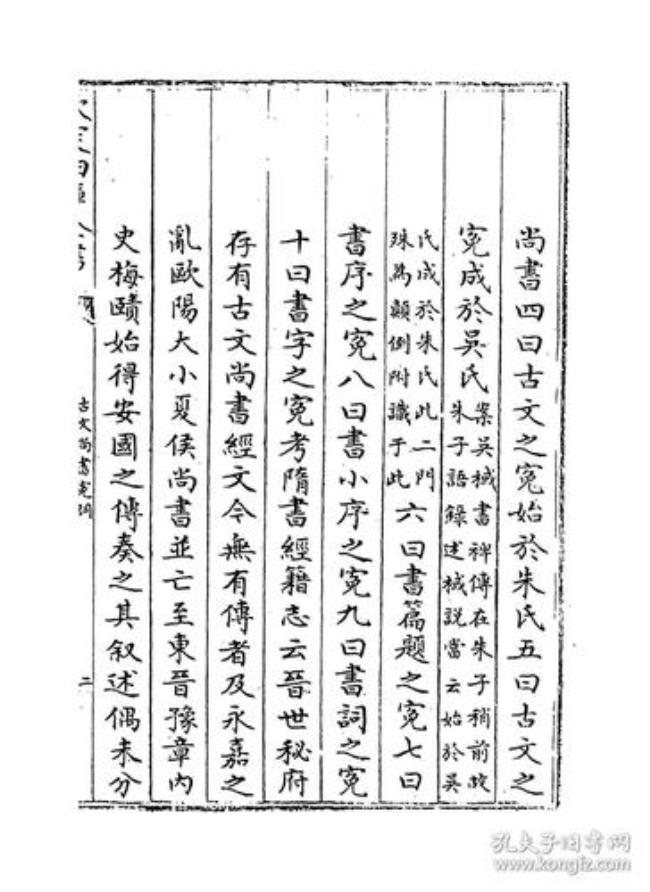 尚書四曰古文之冤始於朱氏五曰古文之
冤成於吳氏案吳棫書裨傳在朱子稍前故
朱子語錄述棫說當云始於吳
氏成於朱氏此二門
殊為顛倒附識于此六曰書篇題之冤七曰
書序之冤八曰書小序之冤九曰書詞之冤
十曰書字之冤考隋書經籍志云晉世秘府
存有古文尚書經文今無有傳者及永嘉之
亂歐陽大小夏侯尚書並亡至東晉豫章內
史梅賾始得安國之傳奏之其叙述偶未分
古文尚書冤詞
二
孔夫子旧书网
www.kongfz.com